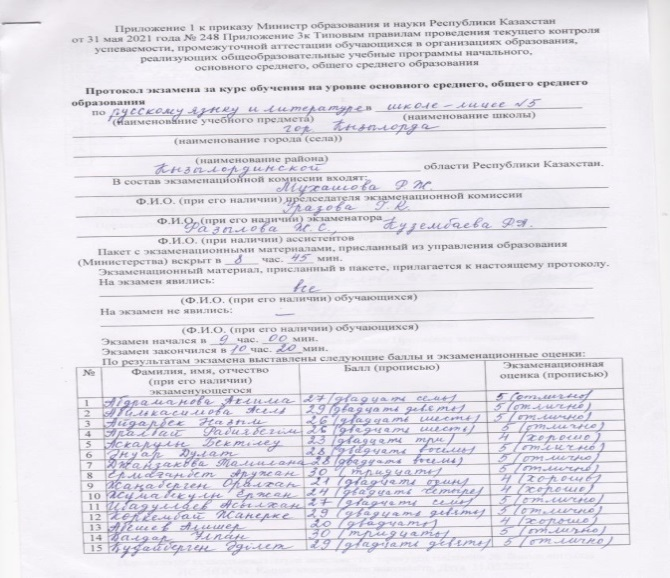 Приложение 1 к приказу Министр образования и науки Республики Казахстан
от 31 мая 2021 года № 248 Приложение 3к Типовым правилам проведения текущего контроля
успеваемости, промежуточной аттестации обучающихся в организациях образования,
реализующих общеобразовательные учебные программы начального,
основного среднего, общего среднего образования
Протокол экзамена за курс обучения на уровне основного среднего, общего среднего
образования
по русскому языку и литературе в школе-лицее №5
(наименование учебного предмета) (наименование школы)
гор. Кызылорда
(наименование города (села))
(наименование района)
Кызылординской области Республики Казахстан.
В состав экзаменационной комиссии входят:
Мухашова Р.Ж.
Ф.И.О. (при его наличии) председателя экзаменационной комиссии
Уразова Г.К.
Ф.И.О. (при его наличии) экзаменатора
Разылова Ж.С., Кузембаева
Ф.И.О. (при наличии) ассистентов
Пакет с экзаменационными материалами, присланный из управления образования
(Министерства) вскрыт в 8 час. 45 мин.
Экзаменационный материал, присланный в пакете, прилагается к настоящему протоколу.
На экзамен явились:
все
(Ф.И.О. (при его наличии) обучающихся)
На экзамен не явились:
—
(Ф.И.О. (при его наличии) обучающихся)
Экзамен начался в 9 час. 00 мин.
Экзамен закончился в 10 час. 20 мин.
По результатам экзамена выставлены следующие баллы и экзаменационные оценки:
№ Фамилия, имя, отчество (при его наличии) экзаменующегося Балл (прописью) Экзаменационная оценка (прописью)
1 Абдраманова Аклима 27 (двадцать семь) 5 (отлично)
2 Абилькасимова Асель 29 (двадцать девять) 5 (отлично)
3 Айдарбек Назым 26 (двадцать шесть) 5 (отлично)
4 Аралбай Рабиябегим 26 (двадцать шесть) 5 (отлично)
5 Аскарулы Бектілеу 23 (двадцать три) 4 (хорошо)
6 Әнуар Дулат 28 (двадцать восемь) 5 (отлично)
7 Джанзакова Томилана 28 (двадцать восемь) 5 (отлично)
8 Ермаганбет Аружан 30 (тридцать) 5 (отлично)
9 Жаңаберген Оралхан 21 (двадцать один) 4 (хорошо)
10 Жумабекулы Ержан 24 (двадцать четыре) 4 (хорошо)
11 Ибадуллаев Асылхан 27 (двадцать семь) 5 (отлично)
12 Көркембай Жанерке 29 (двадцать девять) 5 (отлично)
13 Алишер 20 (двадцать) 4 (хорошо)
14 Балдар Улпан 30 (тридцать) 5 (отлично)
15 Құдайберген Әділет 29 (двадцать девять) 5 (отлично)